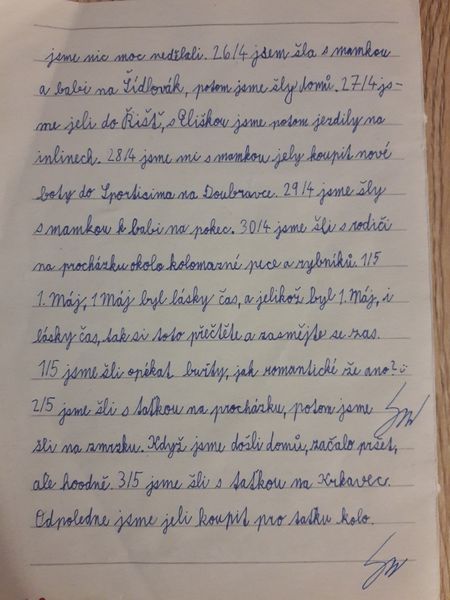 jsme nic moc nedělali. 26/4 jsem šla s mamkou
a babi na Šídlovák, potom jsme šly domů. 27/4 js-
me jeli do Řišť, s Eliškou jsme potom jezdily na
inlinech. 28/4 jsme mi s mamkou jely koupit nové
boty do Sportisima na Doubravce. 29/4 jsme šly
s mamkou k babi na pokec. 30/4 jsme šli s rodiči
na procházku okolo kolomazné pece a rybníků. 1/5
1. Máj, 1 Máj byl lásky čas, a jelikož byl 1. Máj, i
lásky čas, tak si toto přečtěte a zasmějte se zas.
1/5 jsme šli opékat buřty, jak romantické že ano? :)
2/5 jsme šli s taťkou na procházku, potom jsme
šli na zmrzku. Když jsme došli domů, začalo pršet,
ale hoodně. 3/5 jsme šli s taťkou na Krkavec.
Odpoledne jsme jeli koupit pro taťku kolo.